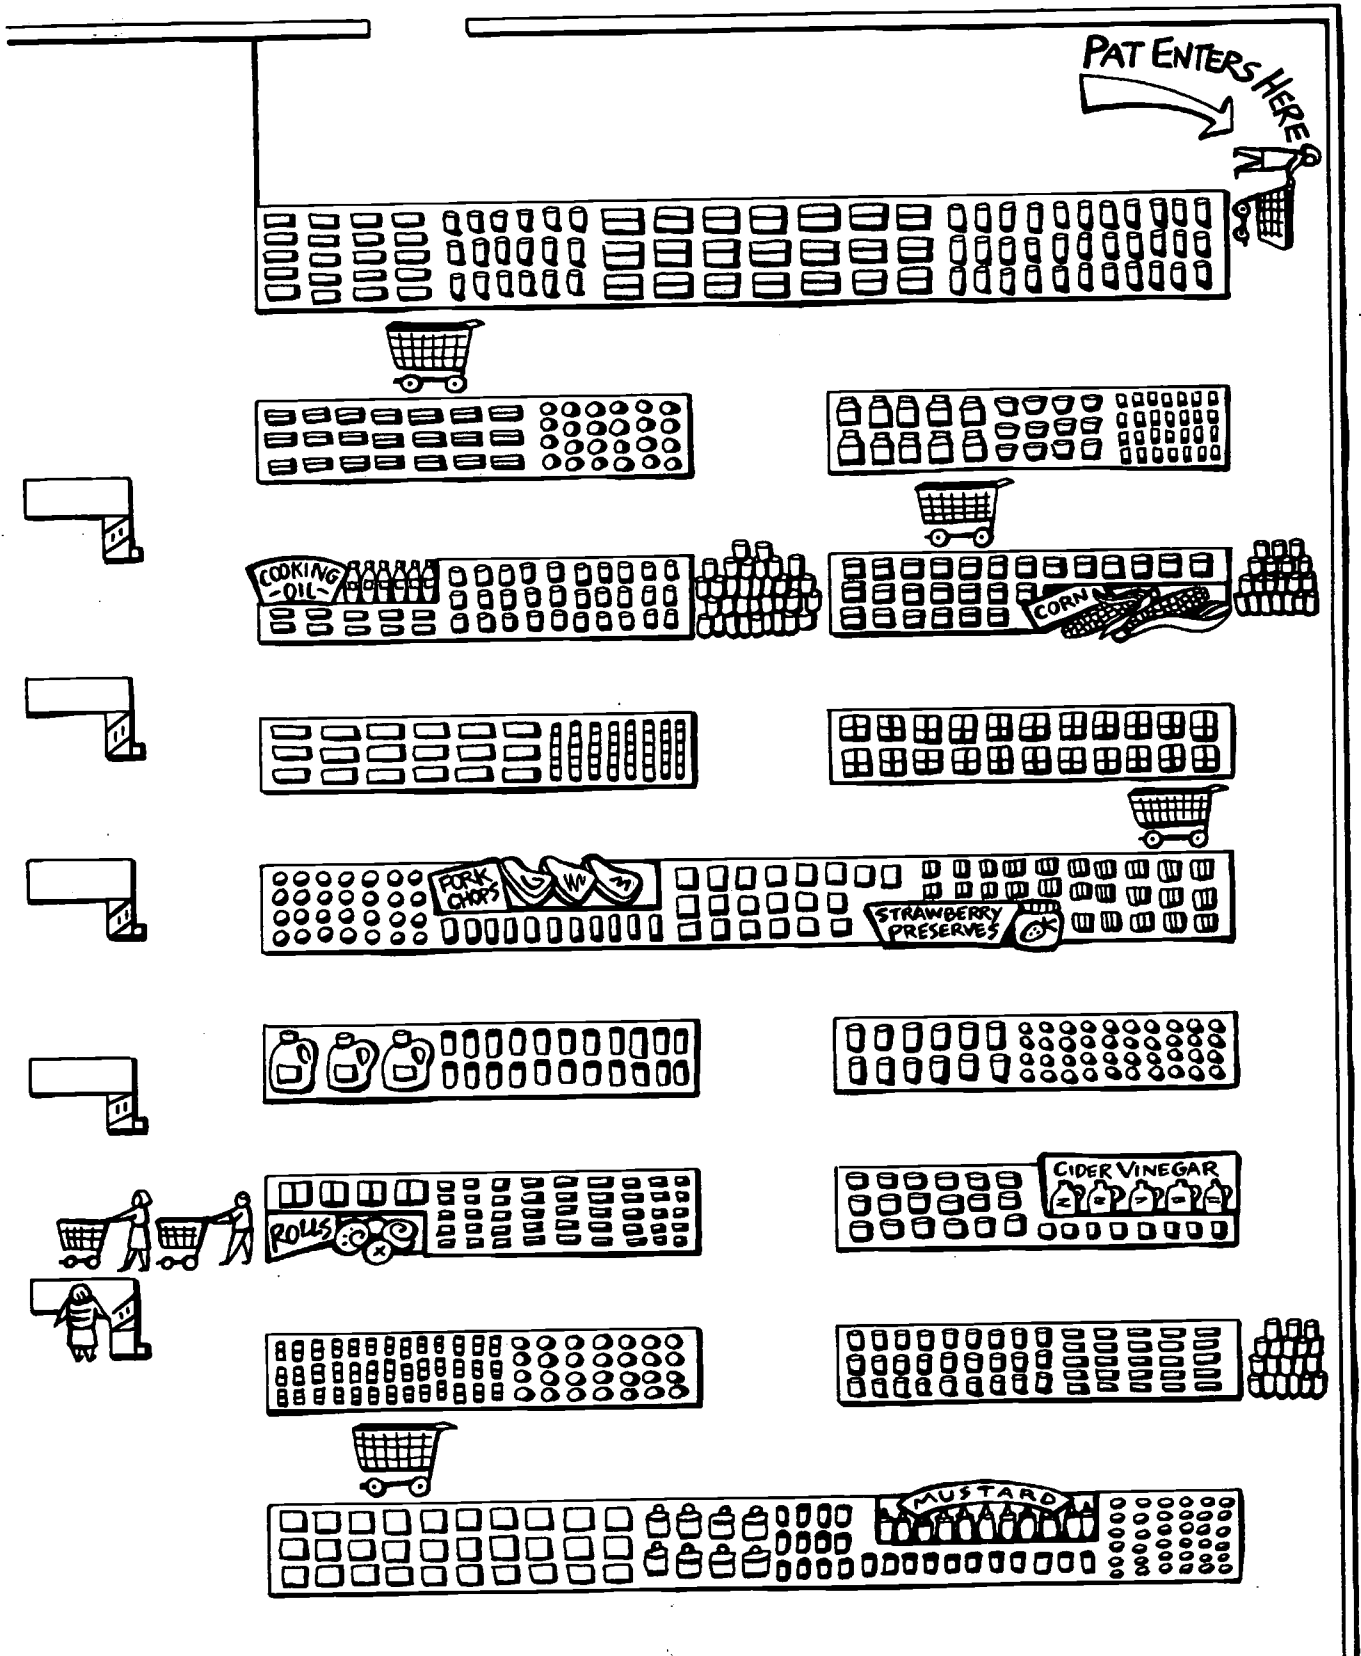 PAT ENTERS HERE
COOKING
-OIL-
CORN
PORK
CHOPS
STRAWBERRY
PRESERVES
CIDER VINEGAR
ROLLS
MUSTARD